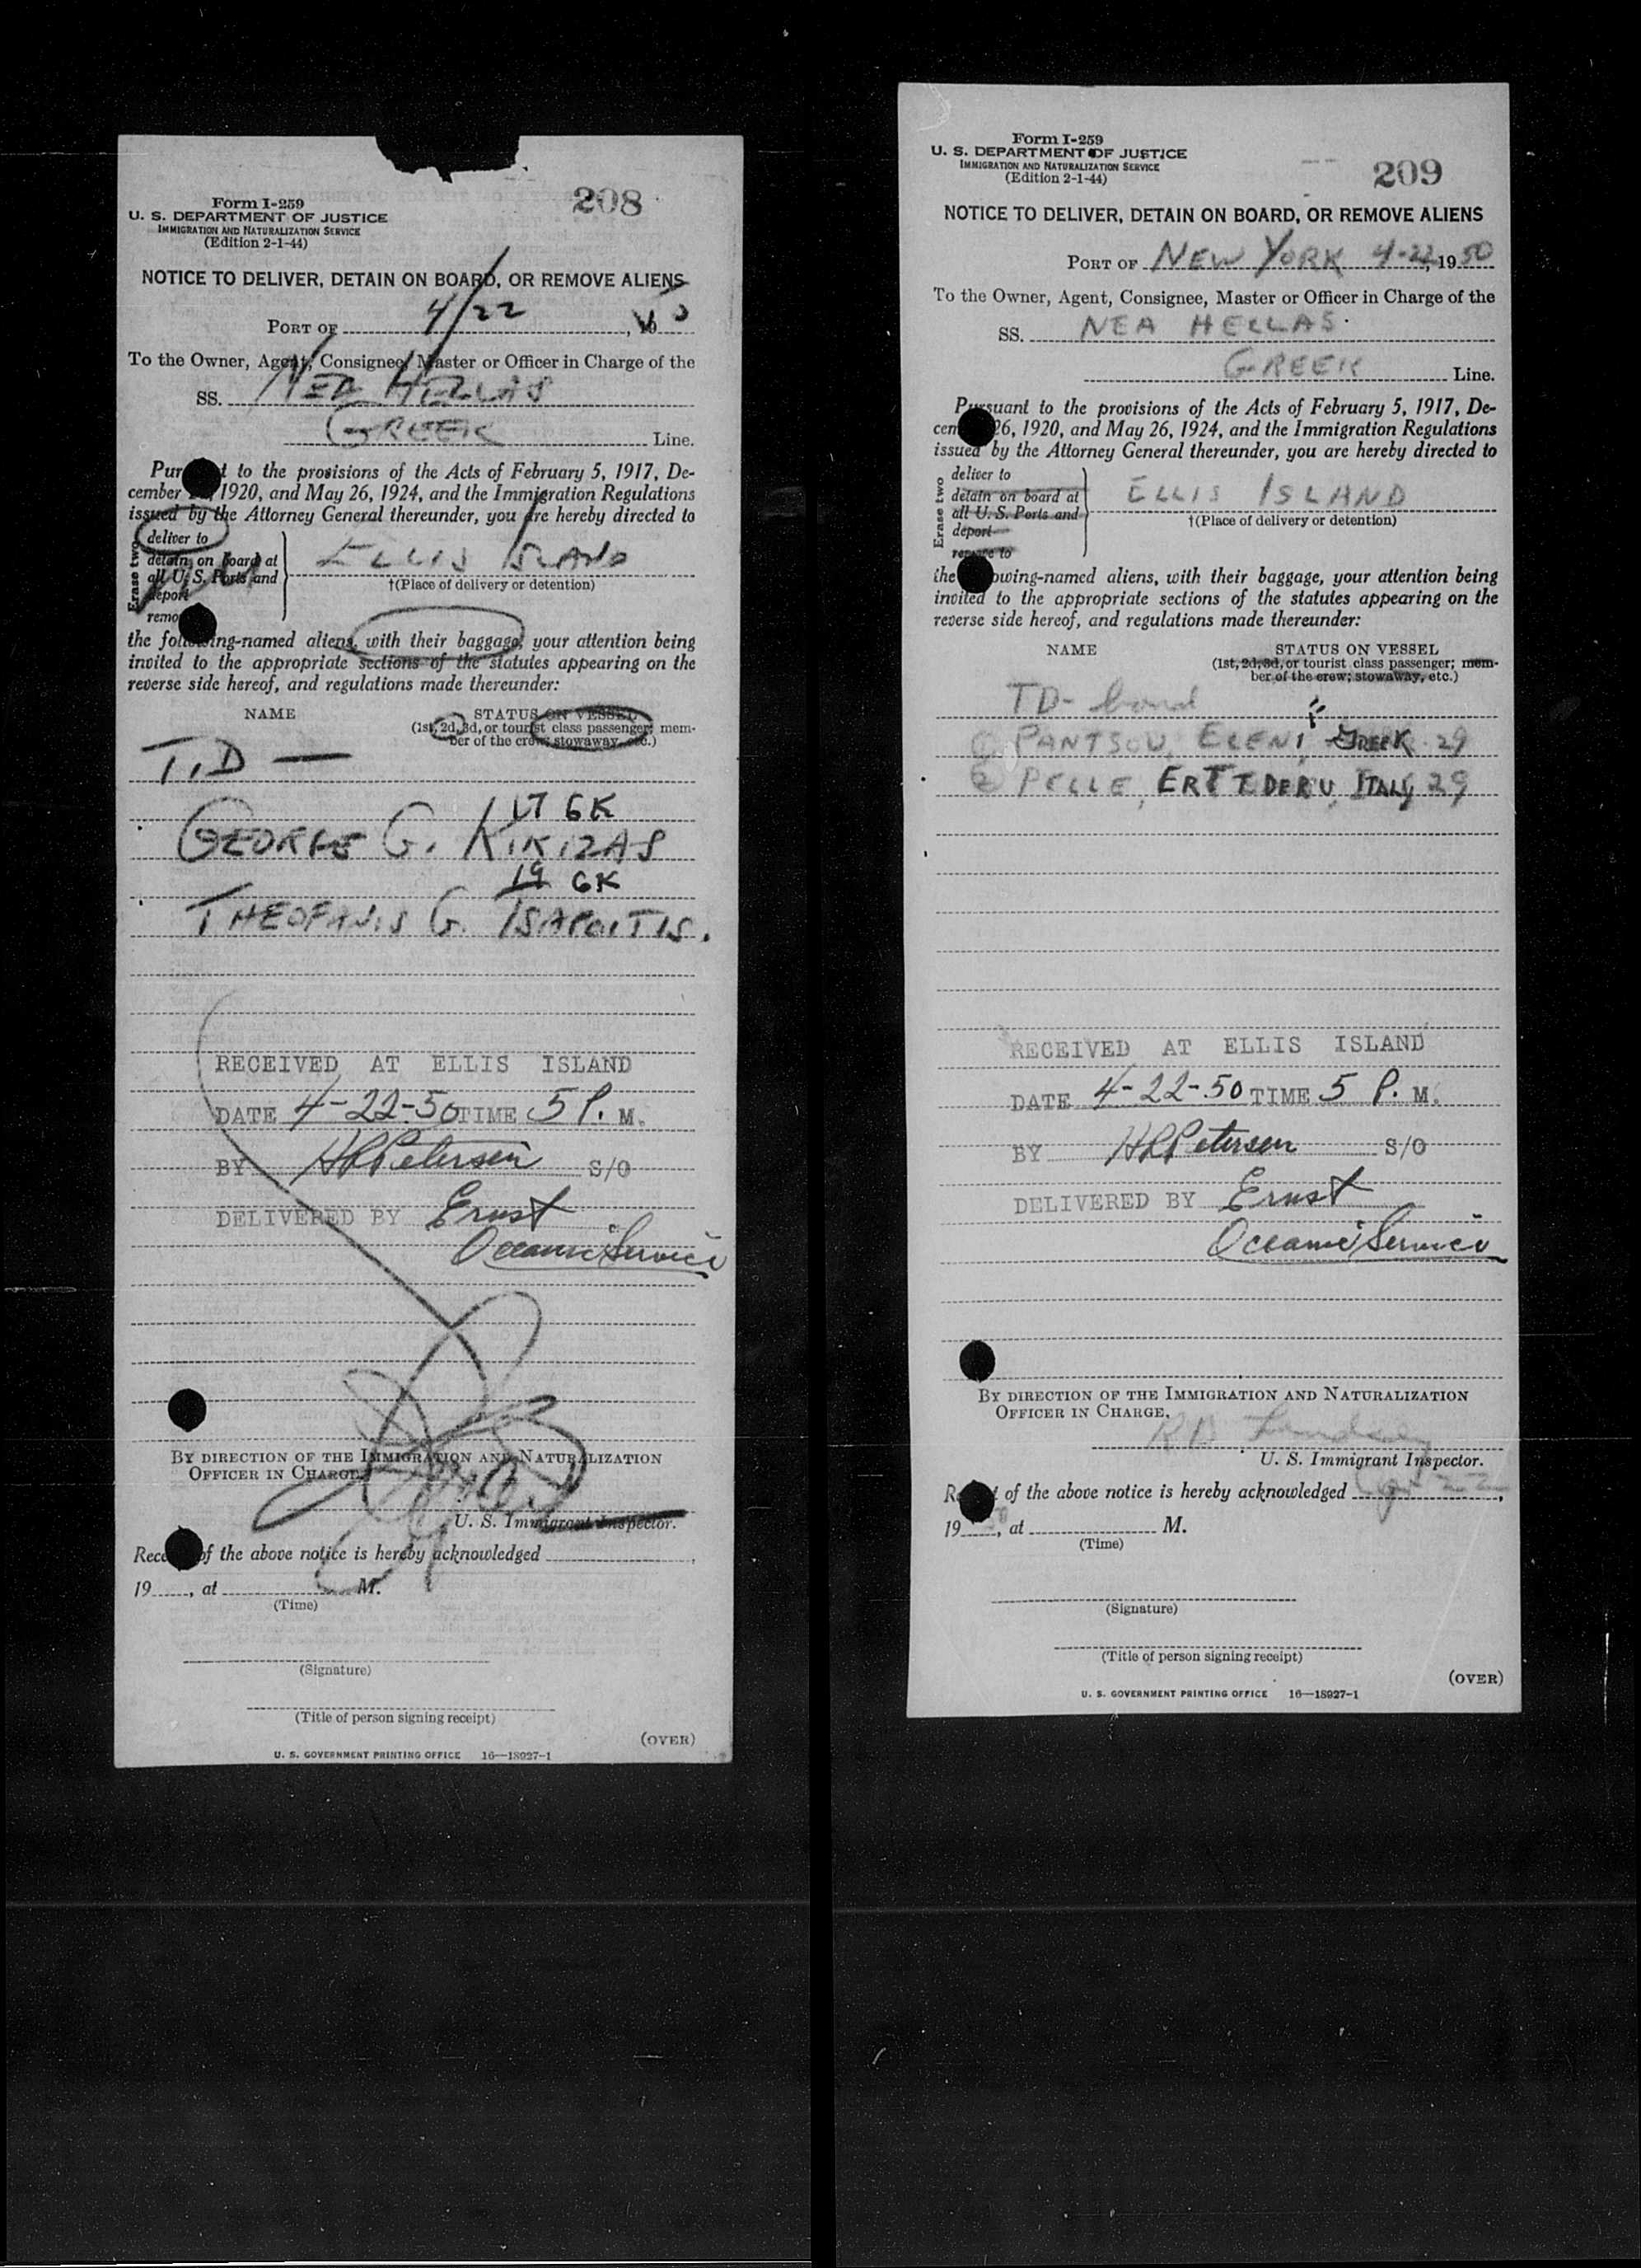 208
Form I-259
U. S. DEPARTMENT OF JUSTICE
IMMIGRATION AND NATURALIZATION SERVICE
(Edition 2-1-44)
NOTICE TO DELIVER, DETAIN ON BOARD, OR REMOVE ALIENS
PORT OF 4/22
To the Owner, Agent, Consignee, Master or Officer in Charge of the
SS. NEA HELLAS
GREEK Line.
to the provisions of the Acts of February 5, 1917, De-
cember 1920, and May 26, 1924, and the Immigration Regulations
issued by the Attorney General thereunder, you are hereby directed to
Erase two
deliver to
detain on board at
all U. S. Ports and
deport
ELLIS ISLAND
†(Place of delivery or detention)
the following-named aliens, with their baggage, your attention being
invited to the appropriate sections of the statutes appearing on the
reverse side hereof, and regulations made thereunder:
NAME STATUS ON VESSEL
(1st, 2d, 3d, or tourist class passenger; mem-
ber of the crew; stowaway, etc.)
T.D —
17 GK
GEORGE G. KIKIZAS
19 GK
THEOFANIS G.
RECEIVED AT ELLIS ISLAND
DATE 4-22-50 TIME 5 P. M.
BY HPPetersen S/O
DELIVERED BY Ernst
Oceanic Service
BY DIRECTION OF THE IMMIGRATION AND NATURALIZATION
OFFICER IN CHARGE.
U. S. Immigrant Inspector.
of the above notice is hereby acknowledged ,
19 , at M.
(Time)
(Signature)
(Title of person signing receipt)
(OVER)
U. S. GOVERNMENT PRINTING OFFICE 16—18927-1
Form I-259
U. S. DEPARTMENT OF JUSTICE
IMMIGRATION AND NATURALIZATION SERVICE
(Edition 2-1-44)
209
NOTICE TO DELIVER, DETAIN ON BOARD, OR REMOVE ALIENS
PORT OF NEW YORK 4-22, 1950
To the Owner, Agent, Consignee, Master or Officer in Charge of the
SS. NEA HELLAS
GREEK Line.
Pursuant to the provisions of the Acts of February 5, 1917, De-
26, 1920, and May 26, 1924, and the Immigration Regulations
issued by the Attorney General thereunder, you are hereby directed to
Erase two
deliver to
detain on board at
all U. S. Ports and
deport
remove to
ELLIS ISLAND
†(Place of delivery or detention)
the following-named aliens, with their baggage, your attention being
invited to the appropriate sections of the statutes appearing on the
reverse side hereof, and regulations made thereunder:
NAME STATUS ON VESSEL
(1st, 2d, 3d, or tourist class passenger; mem-
ber of the crew; stowaway, etc.)
TD- bond
① PANTSOU, ELENI GREEK 29
② PELLE, ITALY 29
RECEIVED AT ELLIS ISLAND
DATE 4-22-50 TIME 5 P. M.
BY HPPetersen S/O
DELIVERED BY Ernst
Oceanic Service
BY DIRECTION OF THE IMMIGRATION AND NATURALIZATION
OFFICER IN CHARGE.
U. S. Immigrant Inspector.
of the above notice is hereby acknowledged ,
19 , at M.
(Time)
(Signature)
(Title of person signing receipt)
(OVER)
U. S. GOVERNMENT PRINTING OFFICE 16—18927-1